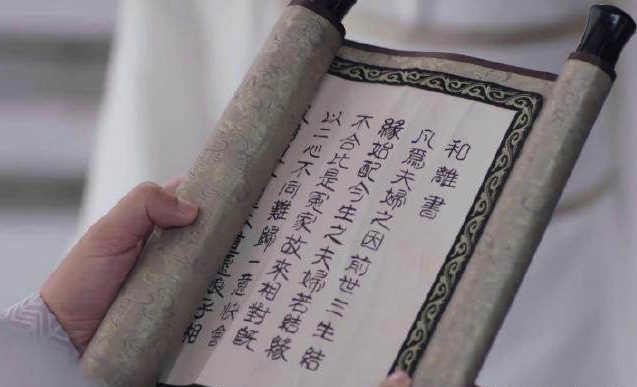 和離書
凡爲夫婦之因前世三生結
緣始配今生之夫婦若結緣
不合比是冤家故來相對既
以二心不同難歸一意快會
娘子相